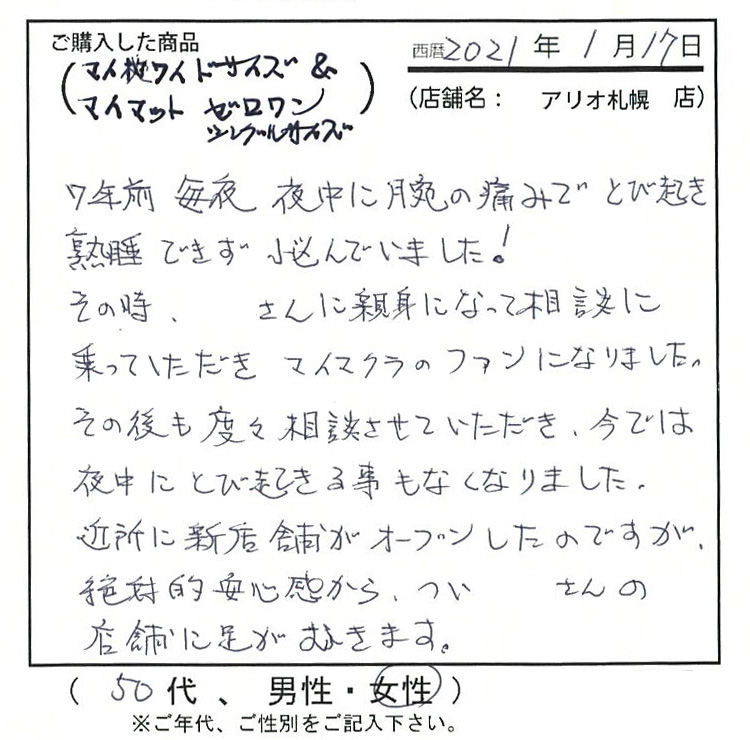 ご購入した商品
西暦2021年1月17日
(マイ枕ワイドサイズ &
マイマット ゼロワン
シングルサイズ)
(店舗名： アリオ札幌 店)
7年前 毎夜 夜中に腕の痛みで とび起き
熟睡できず 悩んでいました!
その時、 さんに親身になって相談に
乗っていただき マイマクラのファンになりました。
その後も度々相談させていただき、今では
夜中にとび起きる事もなくなりました。
近所に新店舗がオープンしたのですが、
絶対的安心感から、つい さんの
店舗に足がむきます。
( 50代 、 男性・女性 )
※ご年代、ご性別をご記入下さい。